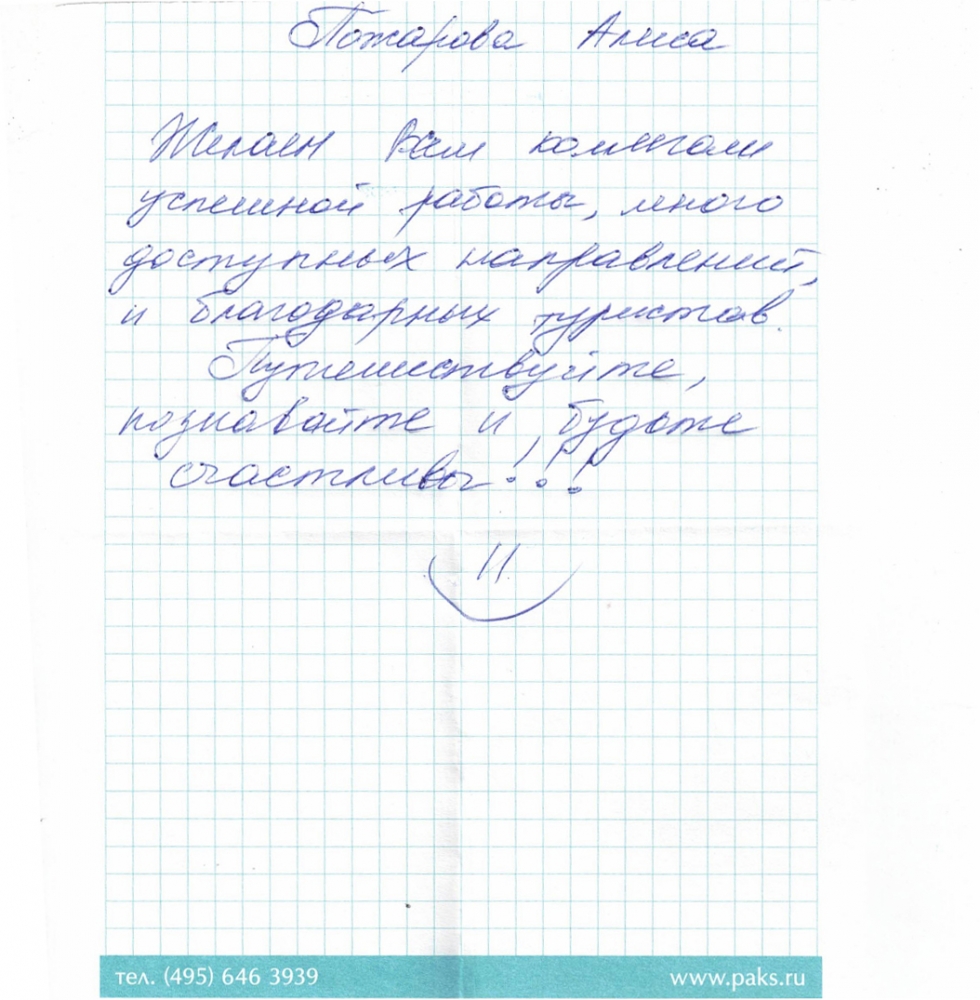 Пожарова Алиса
Желаем Вам коллегам
успешной работы, много
доступных направлений,
и благодарных туристов.
Путешествуйте,
познавайте и будьте
счастливы!!!
тел. (495) 646 3939 www.paks.ru